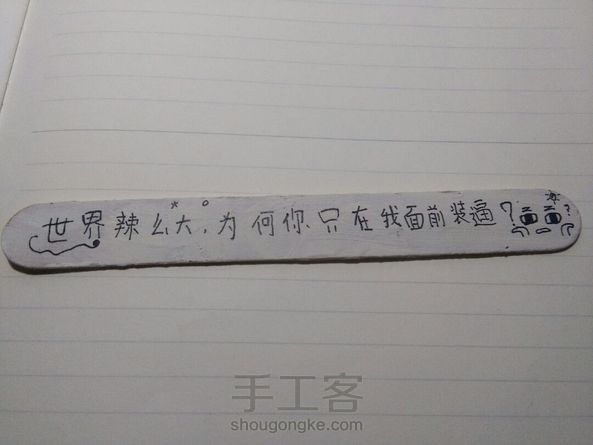 世界辣么大，为何你只在我面前装逼？
手工客
shougongke.com